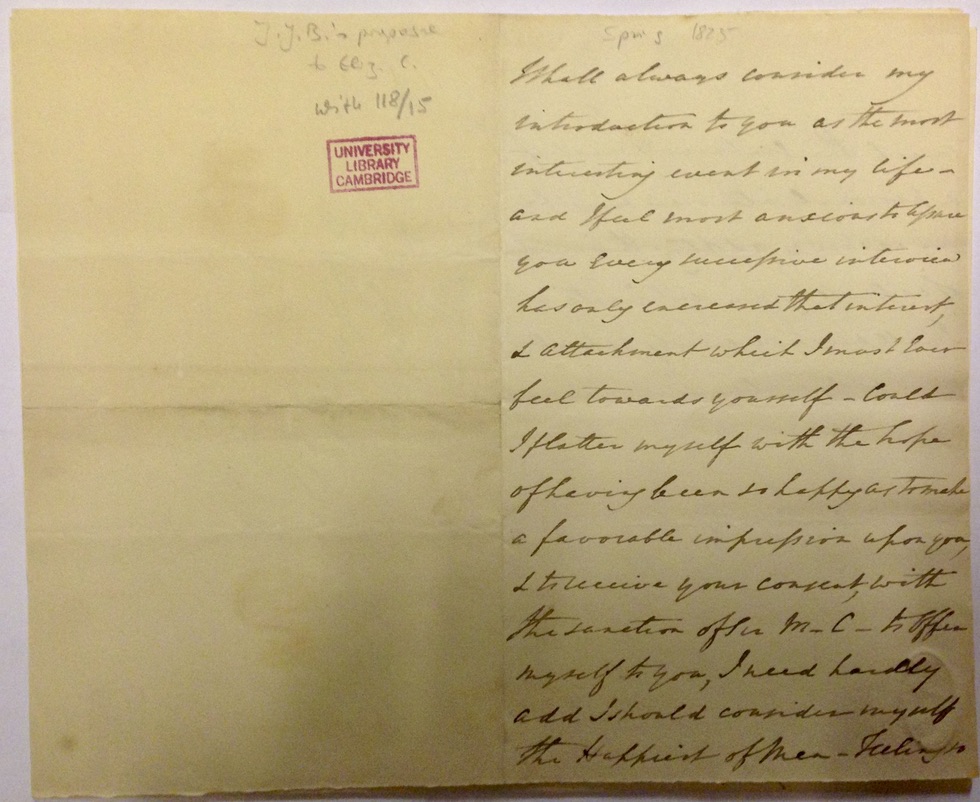 J.J.B.'s proposal
to Eliz. C.
with 118/15
UNIVERSITY
LIBRARY
CAMBRIDGE
Spring 1825
I shall always consider my
introduction to you as the most
interesting event in my life –
and I feel most anxious to assure
you Every successive interview
has only encreased that interest,
& attachment which I must Ever
feel towards yourself – Could
I flatter myself with the hope
of having been so happy as to make
a favorable impression upon you,
& to receive your consent, with
the sanction of Sir M – C – to Offer
myself to you, I need hardly
add I should consider myself
the Happiest of Men – Feeling so